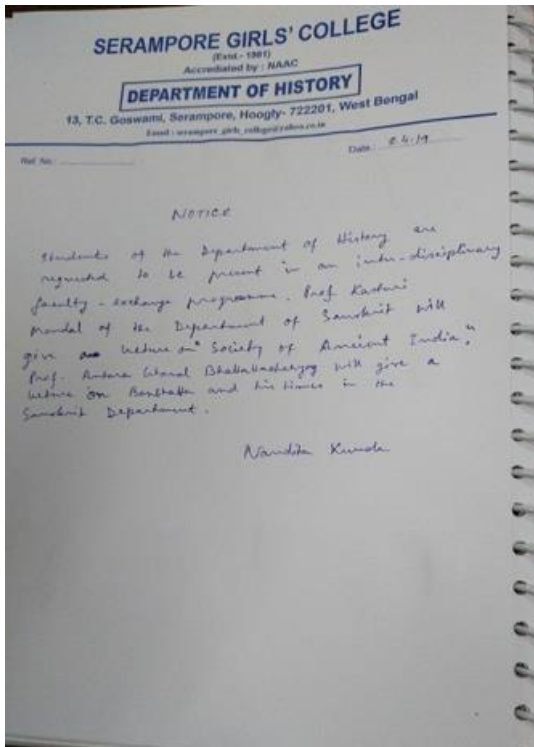 SERAMPORE GIRLS' COLLEGE
(Estd.- 1981)
Accrediated by : NAAC
DEPARTMENT OF HISTORY
13, T.C. Goswami, Serampore, Hoogly- 722201, West Bengal
Email : serampore_girls_college@yahoo.co.in
Ref. No.
Date 2.4.19
NOTICE
Students of the Department of History are
requested to be present in an inter-disciplinary
faculty-exchange programme. Prof. Kasturi
Mondal of the Department of Sanskrit will
give a lecture on "Society of Ancient India."
Prof. Antara Bhattacherjee will give a
lecture on Banbhatta and his times in the
Sanskrit Department.
Nandita Kundu